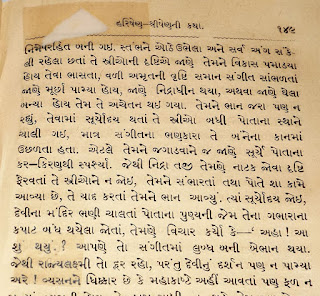 હરિષેણ-શ્રીષેણની કથા. ૧૪૯
નિમેષરહિત બની ગઇ, સ્તંભને ઓઠે ઉભેલા અને સર્વ અંગ સંકે-
લી રહેલા છતાં તે સ્ત્રીઓની દૃષ્ટિએ જાણે તેમને વિકાસ પમાડ્યા
હોય તેવા ભાસતા, વળી અમૃતની વૃષ્ટિ સમાન સંગીત સાંભળતાં
જાણે મૂર્છા પામ્યા હોય, જાણે નિદ્રાધીન થયા, અથવા જાણે ઘેલા
બન્યા હોય તેમ તે અચેતન થઇ ગયા. તેમને ભાન જરા પણ ન
રહ્યું, તેવામાં સૂર્યોદય થતાં તે સ્ત્રીઓ બધી પોતાના સ્થાને
ચાલી ગઈ, માત્ર સંગીતના ભણકારા તે બંનેના કાનમાં
ઉછળતા હતા. એટલે તેમને જગાડવાને જ જાણે સૂર્યે પોતાના
કર-કિરણથી સ્પર્શ્યો. જેથી નિદ્રા તજી તેમણે નાટક જોવા દૃષ્ટિ
ફેરવતાં તે સ્ત્રીઓને ન જોઈ, તેમને સંભારતાં તથા પોતે શા કામે
આવ્યા છે, તે યાદ કરતાં તેમને ભાન આવ્યું. ત્યાં સૂર્યોદય જોઇ,
દેવીના મંદિર ભણી ચાલતાં પોતાના પુણ્યની જેમ તેના ગભારાના
કપાટ બંધ થયેલા જોતાં, તેમણે વિચાર કર્યો કે—‘ અહા ! આ
શું થયું ? આપણે તો સંગીતમાં લુબ્ધ બની બેભાન થયા.
જેથી રાજ્યલક્ષ્મી તો દૂર રહો, પરંતુ દેવીનું દર્શન પણ ન પામ્યા
અરે ! વ્યસનને ધિક્કાર છે કે મહાકષ્ટે અહીં આવતાં પણ ફળ ન